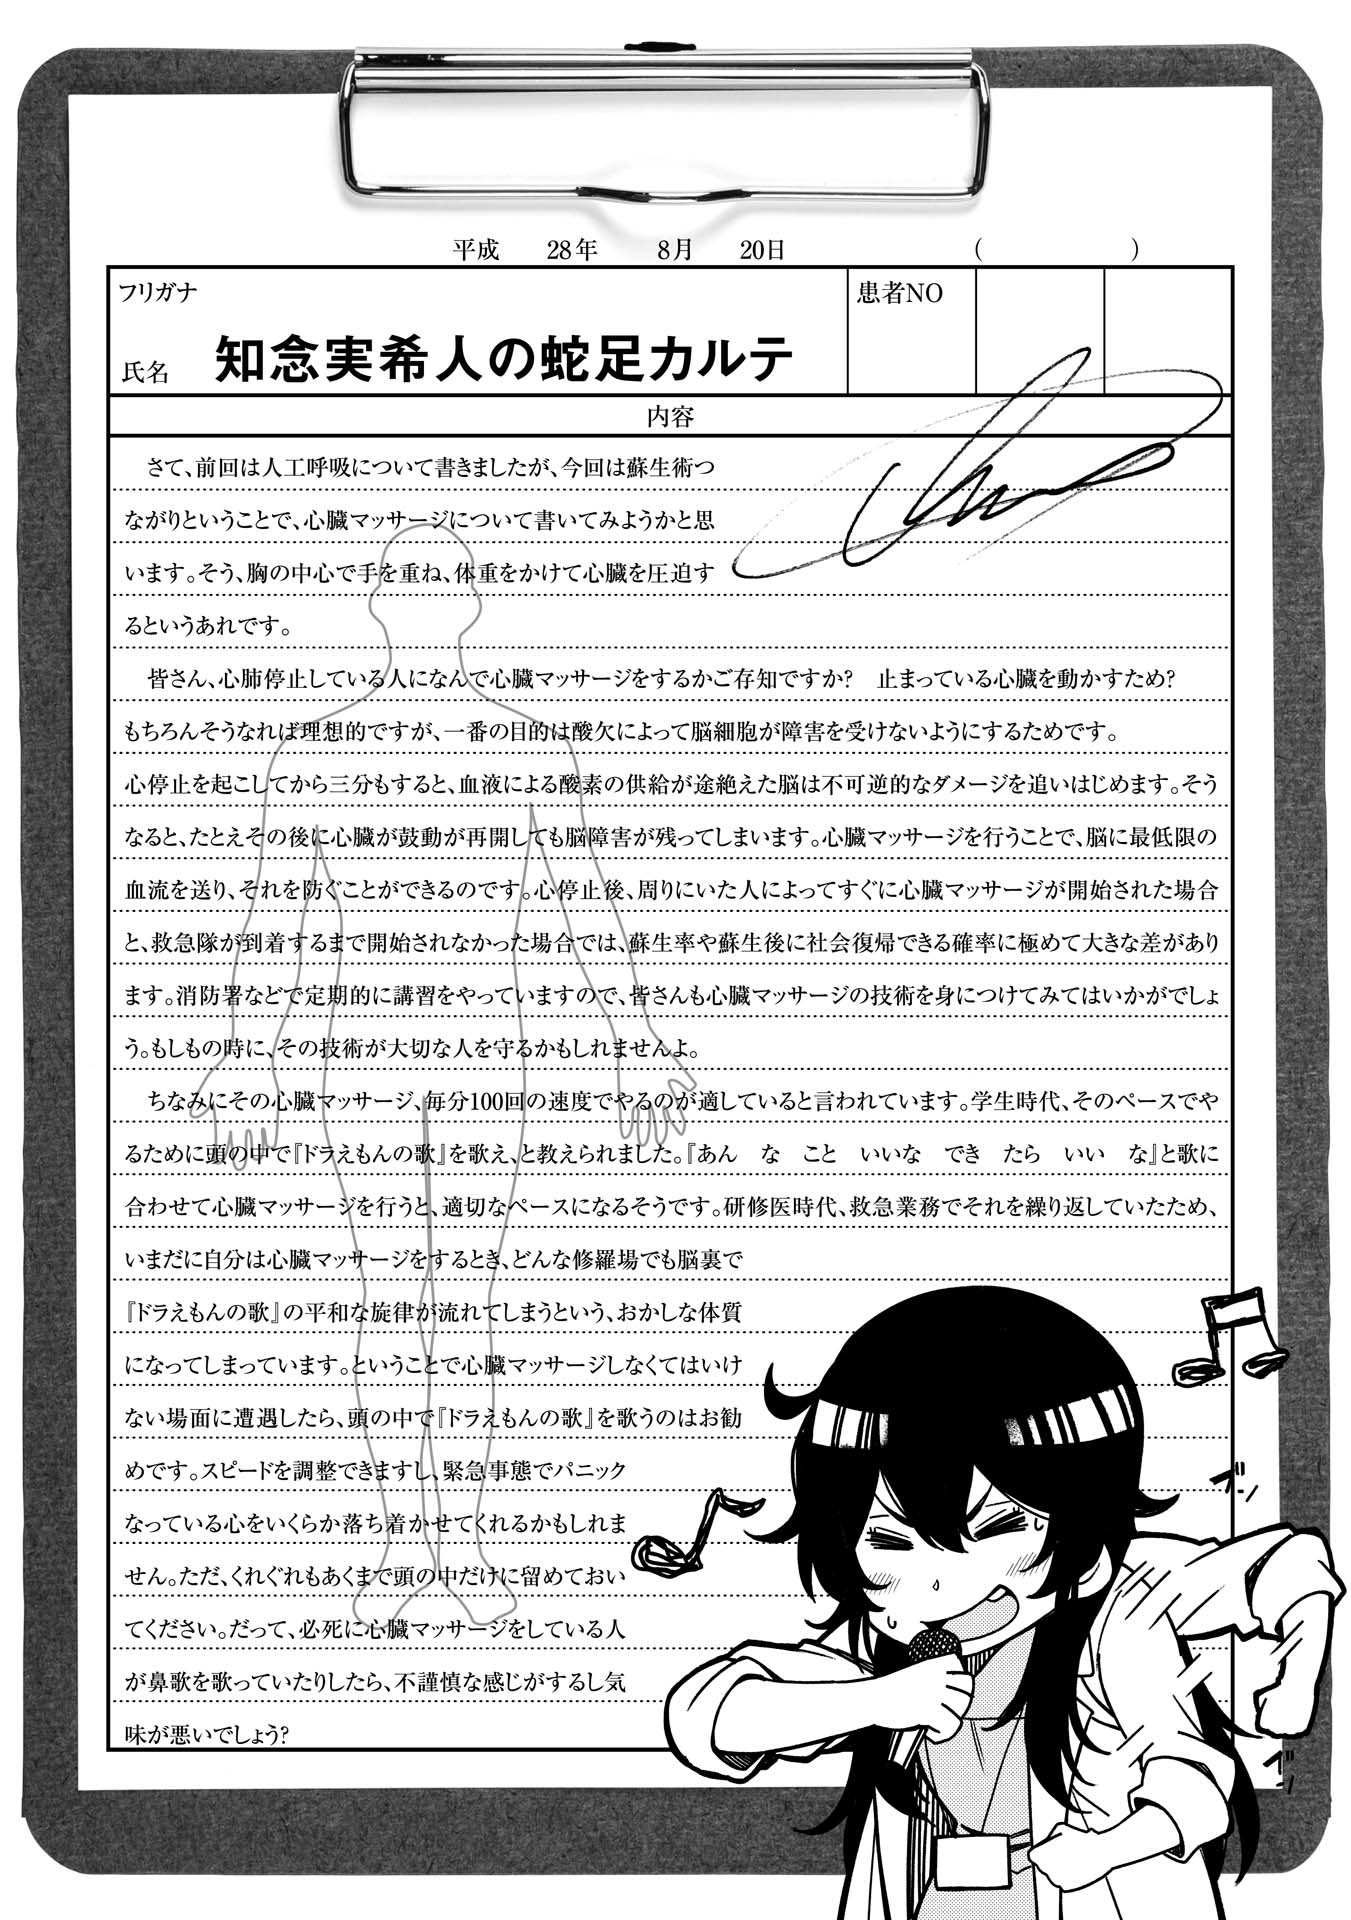 平成 28年 8月 20日 ( )
フリガナ
患者NO
氏名 知念実希人の蛇足カルテ
内容
さて、前回は人工呼吸について書きましたが、今回は蘇生術つ
ながりということで、心臓マッサージについて書いてみようかと思
います。そう、胸の中心で手を重ね、体重をかけて心臓を圧迫す
るというあれです。
皆さん、心肺停止している人になんで心臓マッサージをするかご存知ですか? 止まっている心臓を動かすため?
もちろんそうなれば理想的ですが、一番の目的は酸欠によって脳細胞が障害を受けないようにするためです。
心停止を起こしてから三分もすると、血液による酸素の供給が途絶えた脳は不可逆的なダメージを追いはじめます。そう
なると、たとえその後に心臓が鼓動が再開しても脳障害が残ってしまいます。心臓マッサージを行うことで、脳に最低限の
血流を送り、それを防ぐことができるのです。心停止後、周りにいた人によってすぐに心臓マッサージが開始された場合
と、救急隊が到着するまで開始されなかった場合では、蘇生率や蘇生後に社会復帰できる確率に極めて大きな差があり
ます。消防署などで定期的に講習をやっていますので、皆さんも心臓マッサージの技術を身につけてみてはいかがでしょ
う。もしもの時に、その技術が大切な人を守るかもしれませんよ。
ちなみにその心臓マッサージ、毎分100回の速度でやるのが適していると言われています。学生時代、そのペースでや
るために頭の中で『ドラえもんの歌』を歌え、と教えられました。『あん な こと いいな でき たら いい な』と歌に
合わせて心臓マッサージを行うと、適切なペースになるそうです。研修医時代、救急業務でそれを繰り返していたため、
いまだに自分は心臓マッサージをするとき、どんな修羅場でも脳裏で
『ドラえもんの歌』の平和な旋律が流れてしまうという、おかしな体質
になってしまっています。ということで心臓マッサージしなくてはいけ
ない場面に遭遇したら、頭の中で『ドラえもんの歌』を歌うのはお勧
めです。スピードを調整できますし、緊急事態でパニック
なっている心をいくらか落ち着かせてくれるかもしれま
せん。ただ、くれぐれもあくまで頭の中だけに留めておい
てください。だって、必死に心臓マッサージをしている人
が鼻歌を歌っていたりしたら、不謹慎な感じがするし気
味が悪いでしょう?